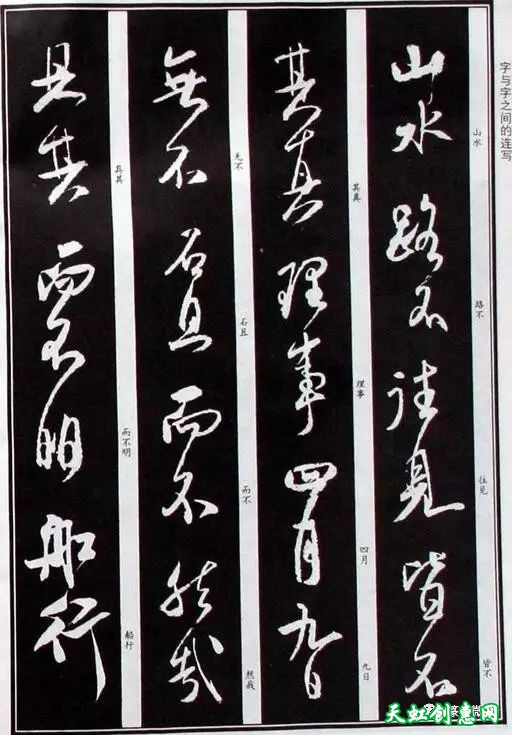 字与字之间的连写
山水路不往見皆不
山水
路不
往见
皆不
其真理事四月九日
其真
理事
四月
九日
無不石且而不然哉
无不
石且
而不
然哉
具其而不明船行
具其
而不明
船行
天虹创意网